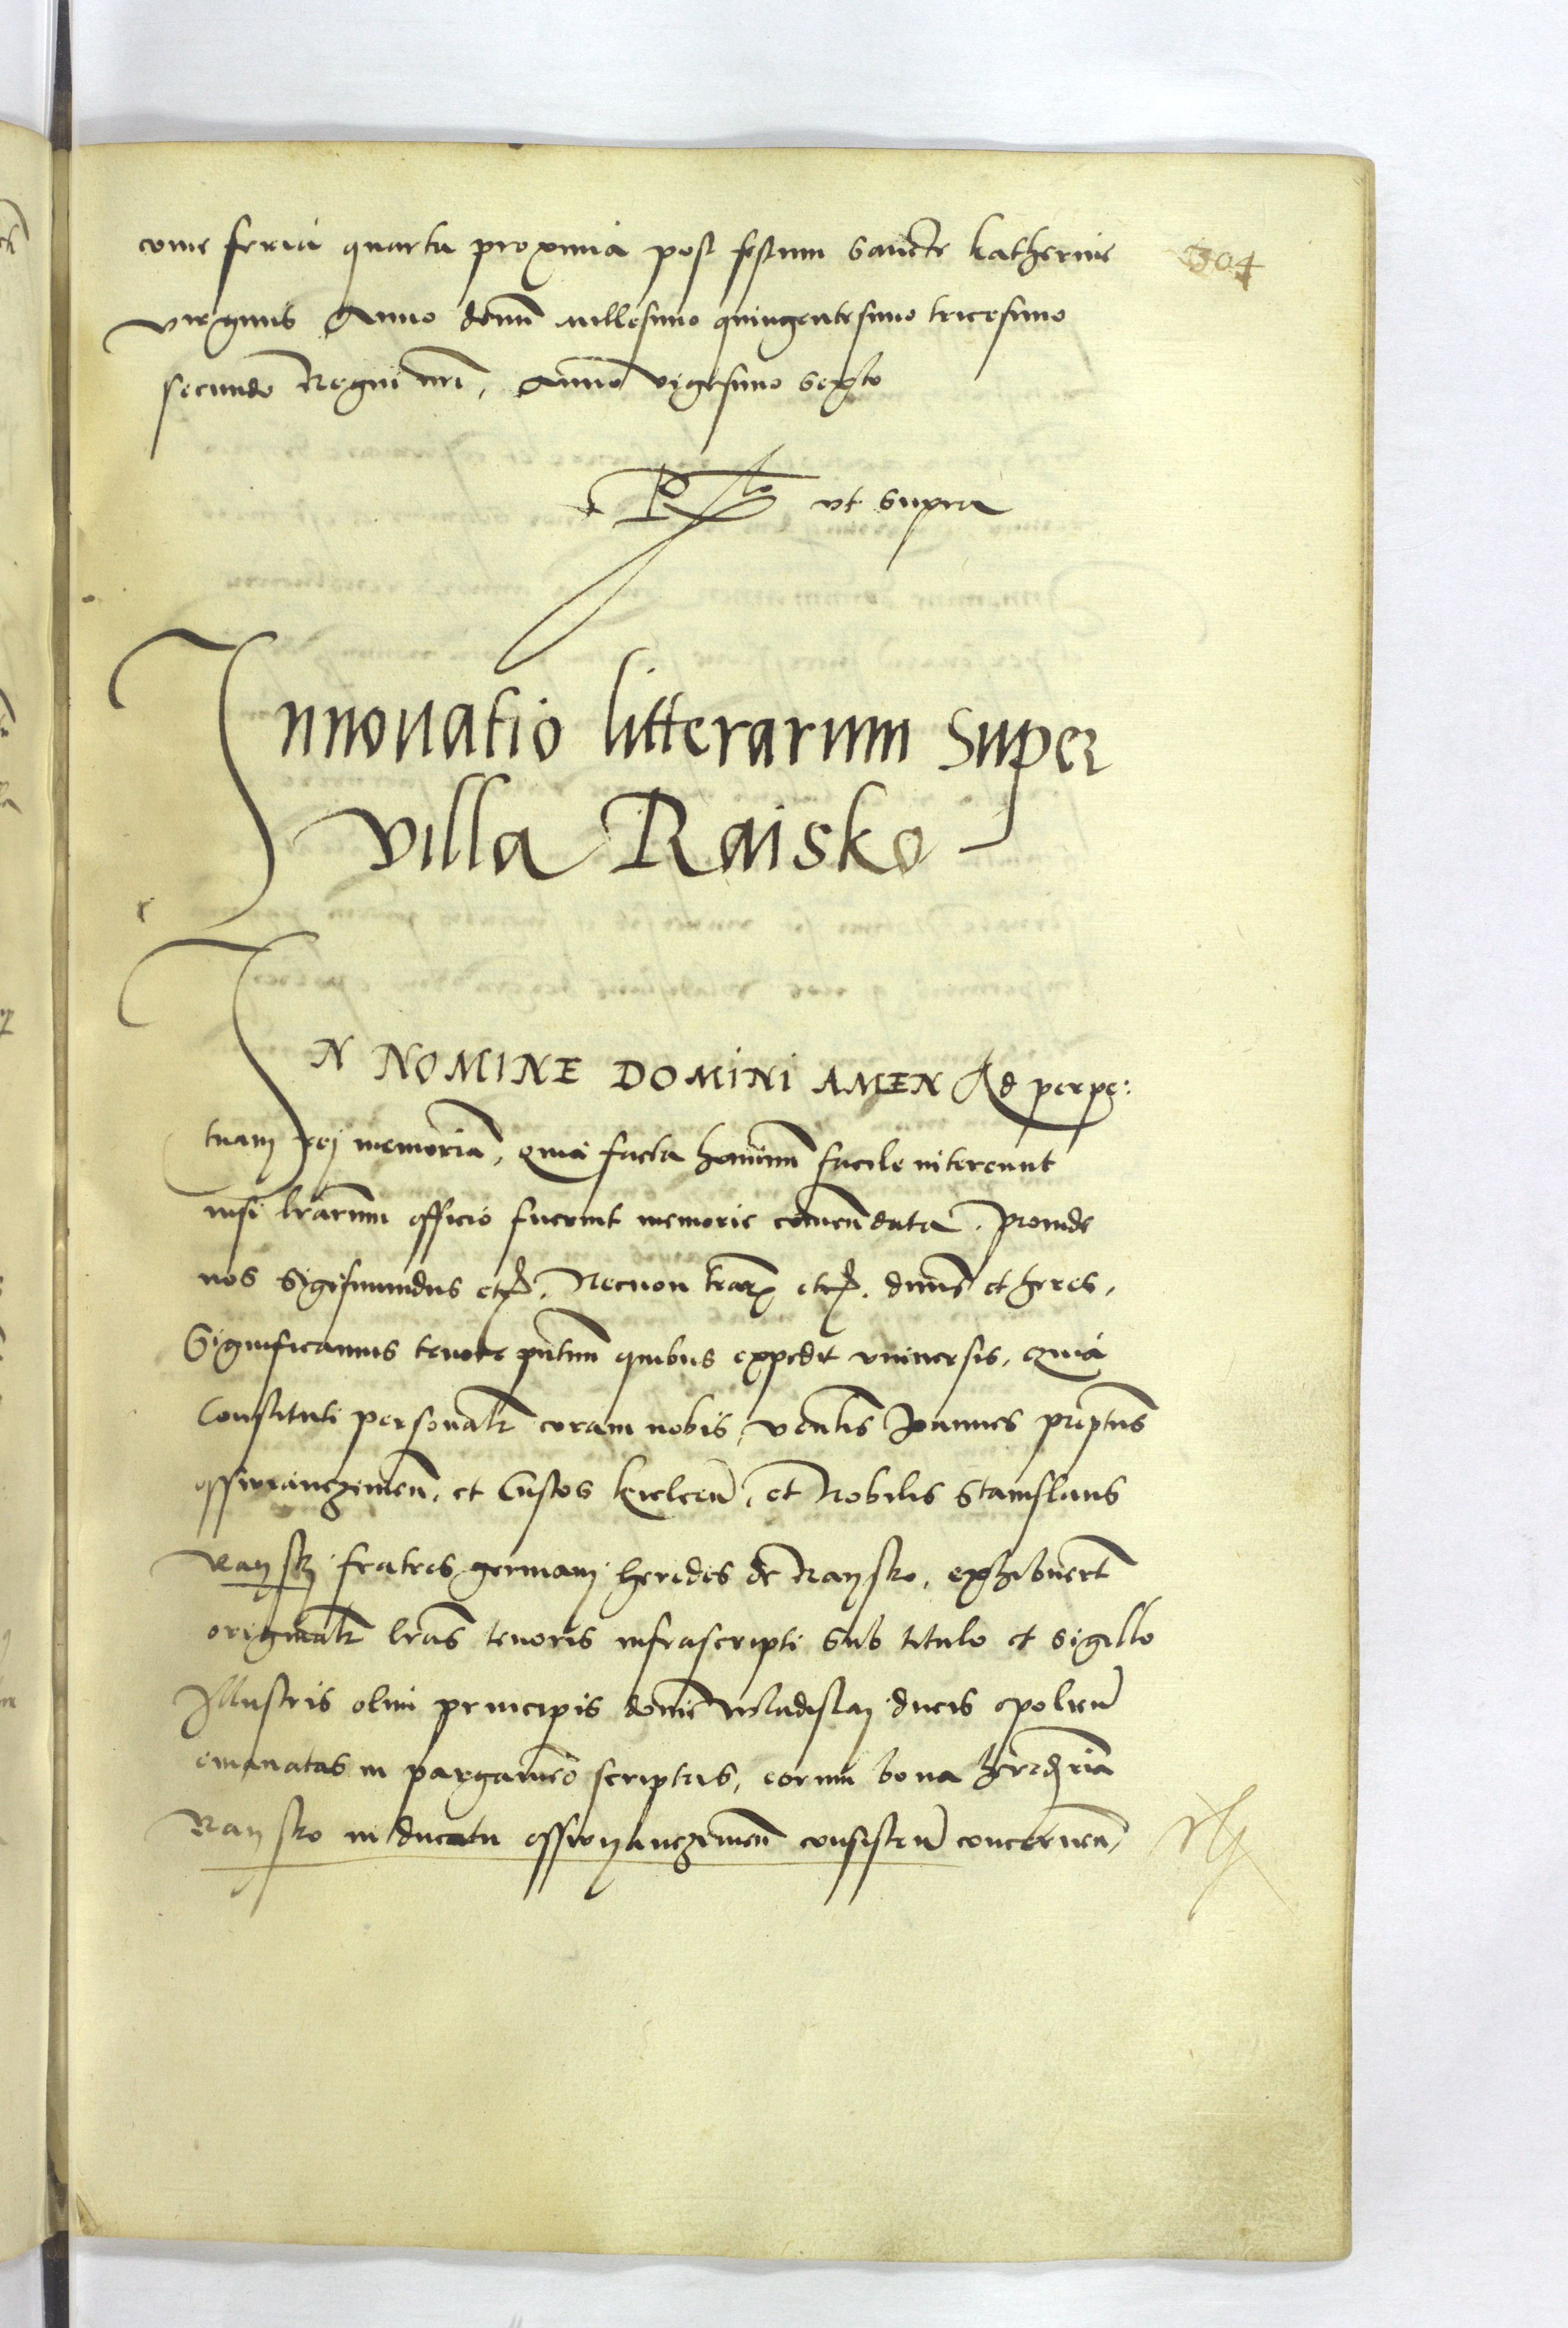 covie feria quarta proxima post festum Sancte Katherine
304
virginis Anno domi millesimo quingentesimo tricesimo
secundo Regni nri, Anno vigesimo Sexto
ut supra
Innovatio litterarum super
villa Raisko
IN NOMINE DOMINI AMEN Ad perpe:
tuam rej memoria, Quia facta hominu facile intereunt
nisi lrarum officio fuerint memorie comendata. Proinde
nos Sigismundus etc. Necnon trarum etc. dnus et heres.
Significamus tenore pntium quibus expedit universis, Quia
Constituti personalr coram nobis, venlis Joannes preptus
osswianczimen, et Custos kielcen, et Nobilis Stanislaus
Rayskj fratres germanj heredes de Raysko, exhibuert
originalr lras tenoris infrascripti sub titulo et sigillo
Illustris olim principis domi wladislaj ducis opolien
emanatas in pargameno scriptas, eorum bona heredria
Raysko in ducatu osswyanczimen consisten concernen,